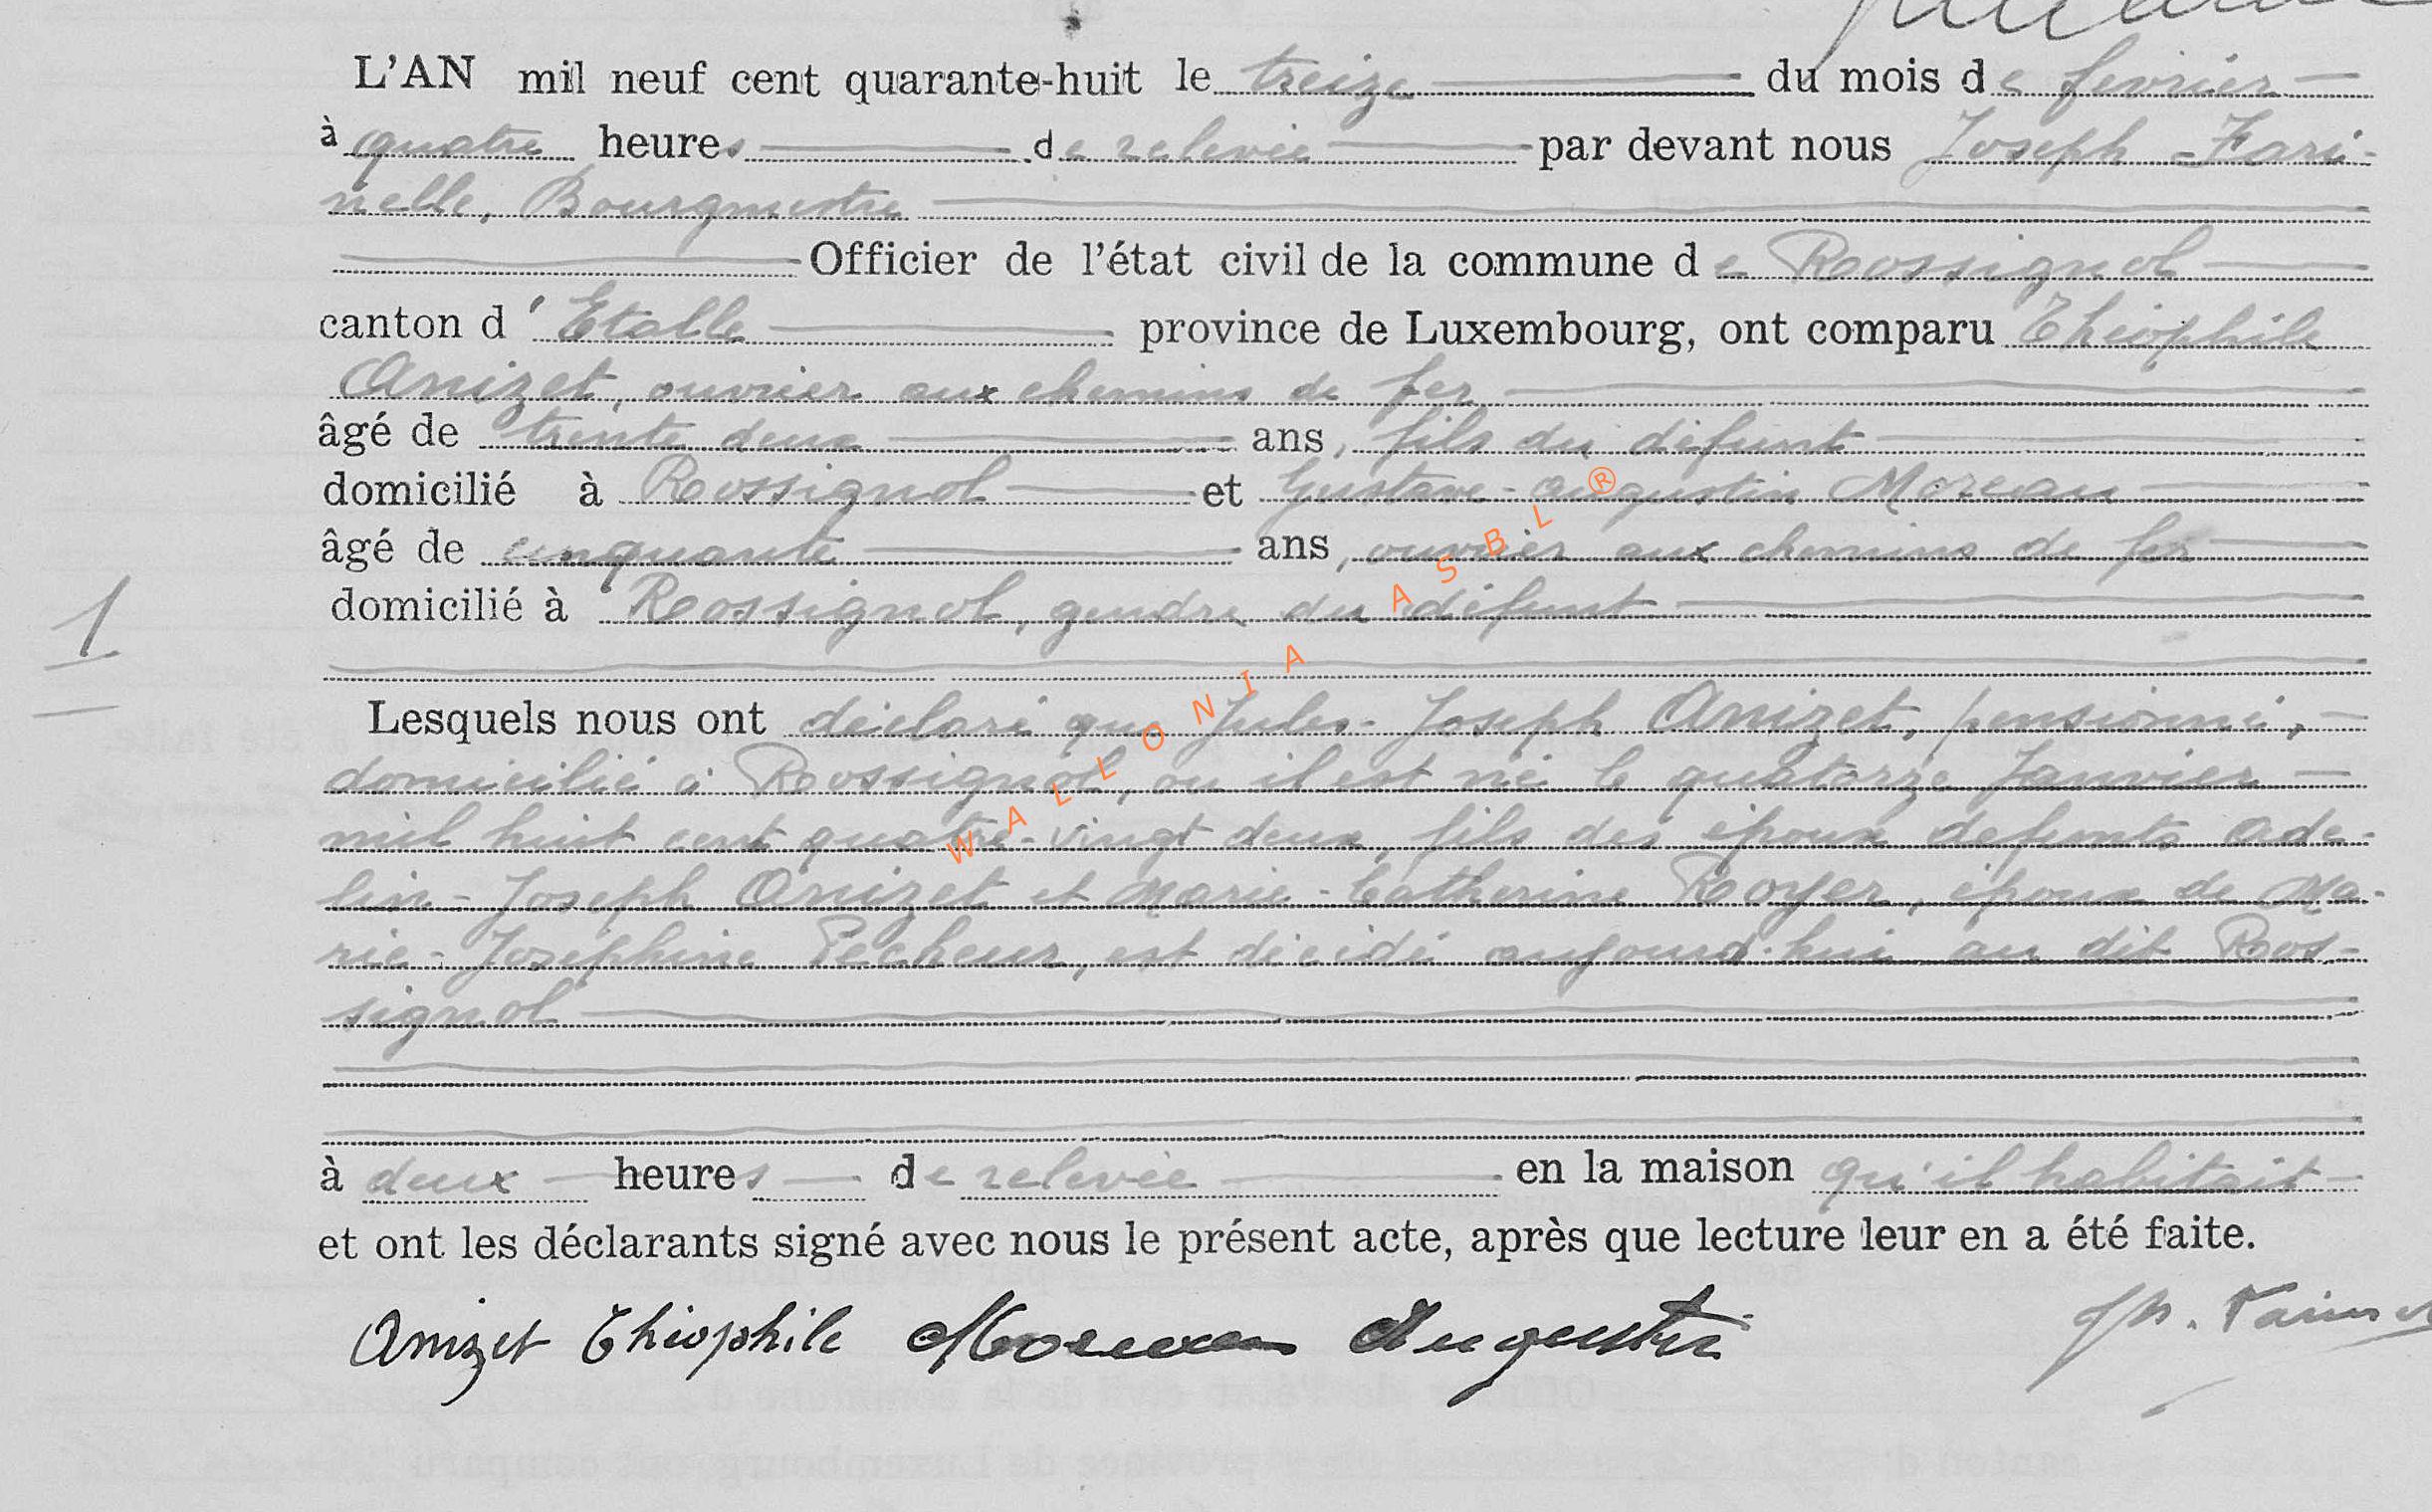 L'AN mil neuf cent quarante-huit le treize du mois de fevrier
à quatre heures de relevée par devant nous Joseph Fari-
nelle, Bourgmestre
Officier de l'état civil de la commune de Rossignol
canton d'Etalle province de Luxembourg, ont comparu Théophile
Anizet, ouvrier aux chemins de fer
âgé de trente deux ans, fils du défunt
domicilié à Rossignol et Gustave-Augustin Moreau
âgé de cinquante ans, ouvrier aux chemins de fer
domicilié à Rossignol, gendre du défunt
1
Lesquels nous ont déclaré que Jules-Joseph Anizet, pensionné,
domicilié à Rossignol, ou il est né le quatorze Janvier
mil huit cent quatre-vingt deux, fils des époux defunts Ade-
lin-Joseph Anizet et Marie-Catherine Royer, époux de Ma-
rie-Joséphine Pecheur, est décédé aujourd'hui au dit Ros-
signol
à deux heures de relevée en la maison qu'il habitait
et ont les déclarants signé avec nous le présent acte, après que lecture leur en a été faite.
Anizet Théophile Moreau Augustin
WALLONIA ASBL ®